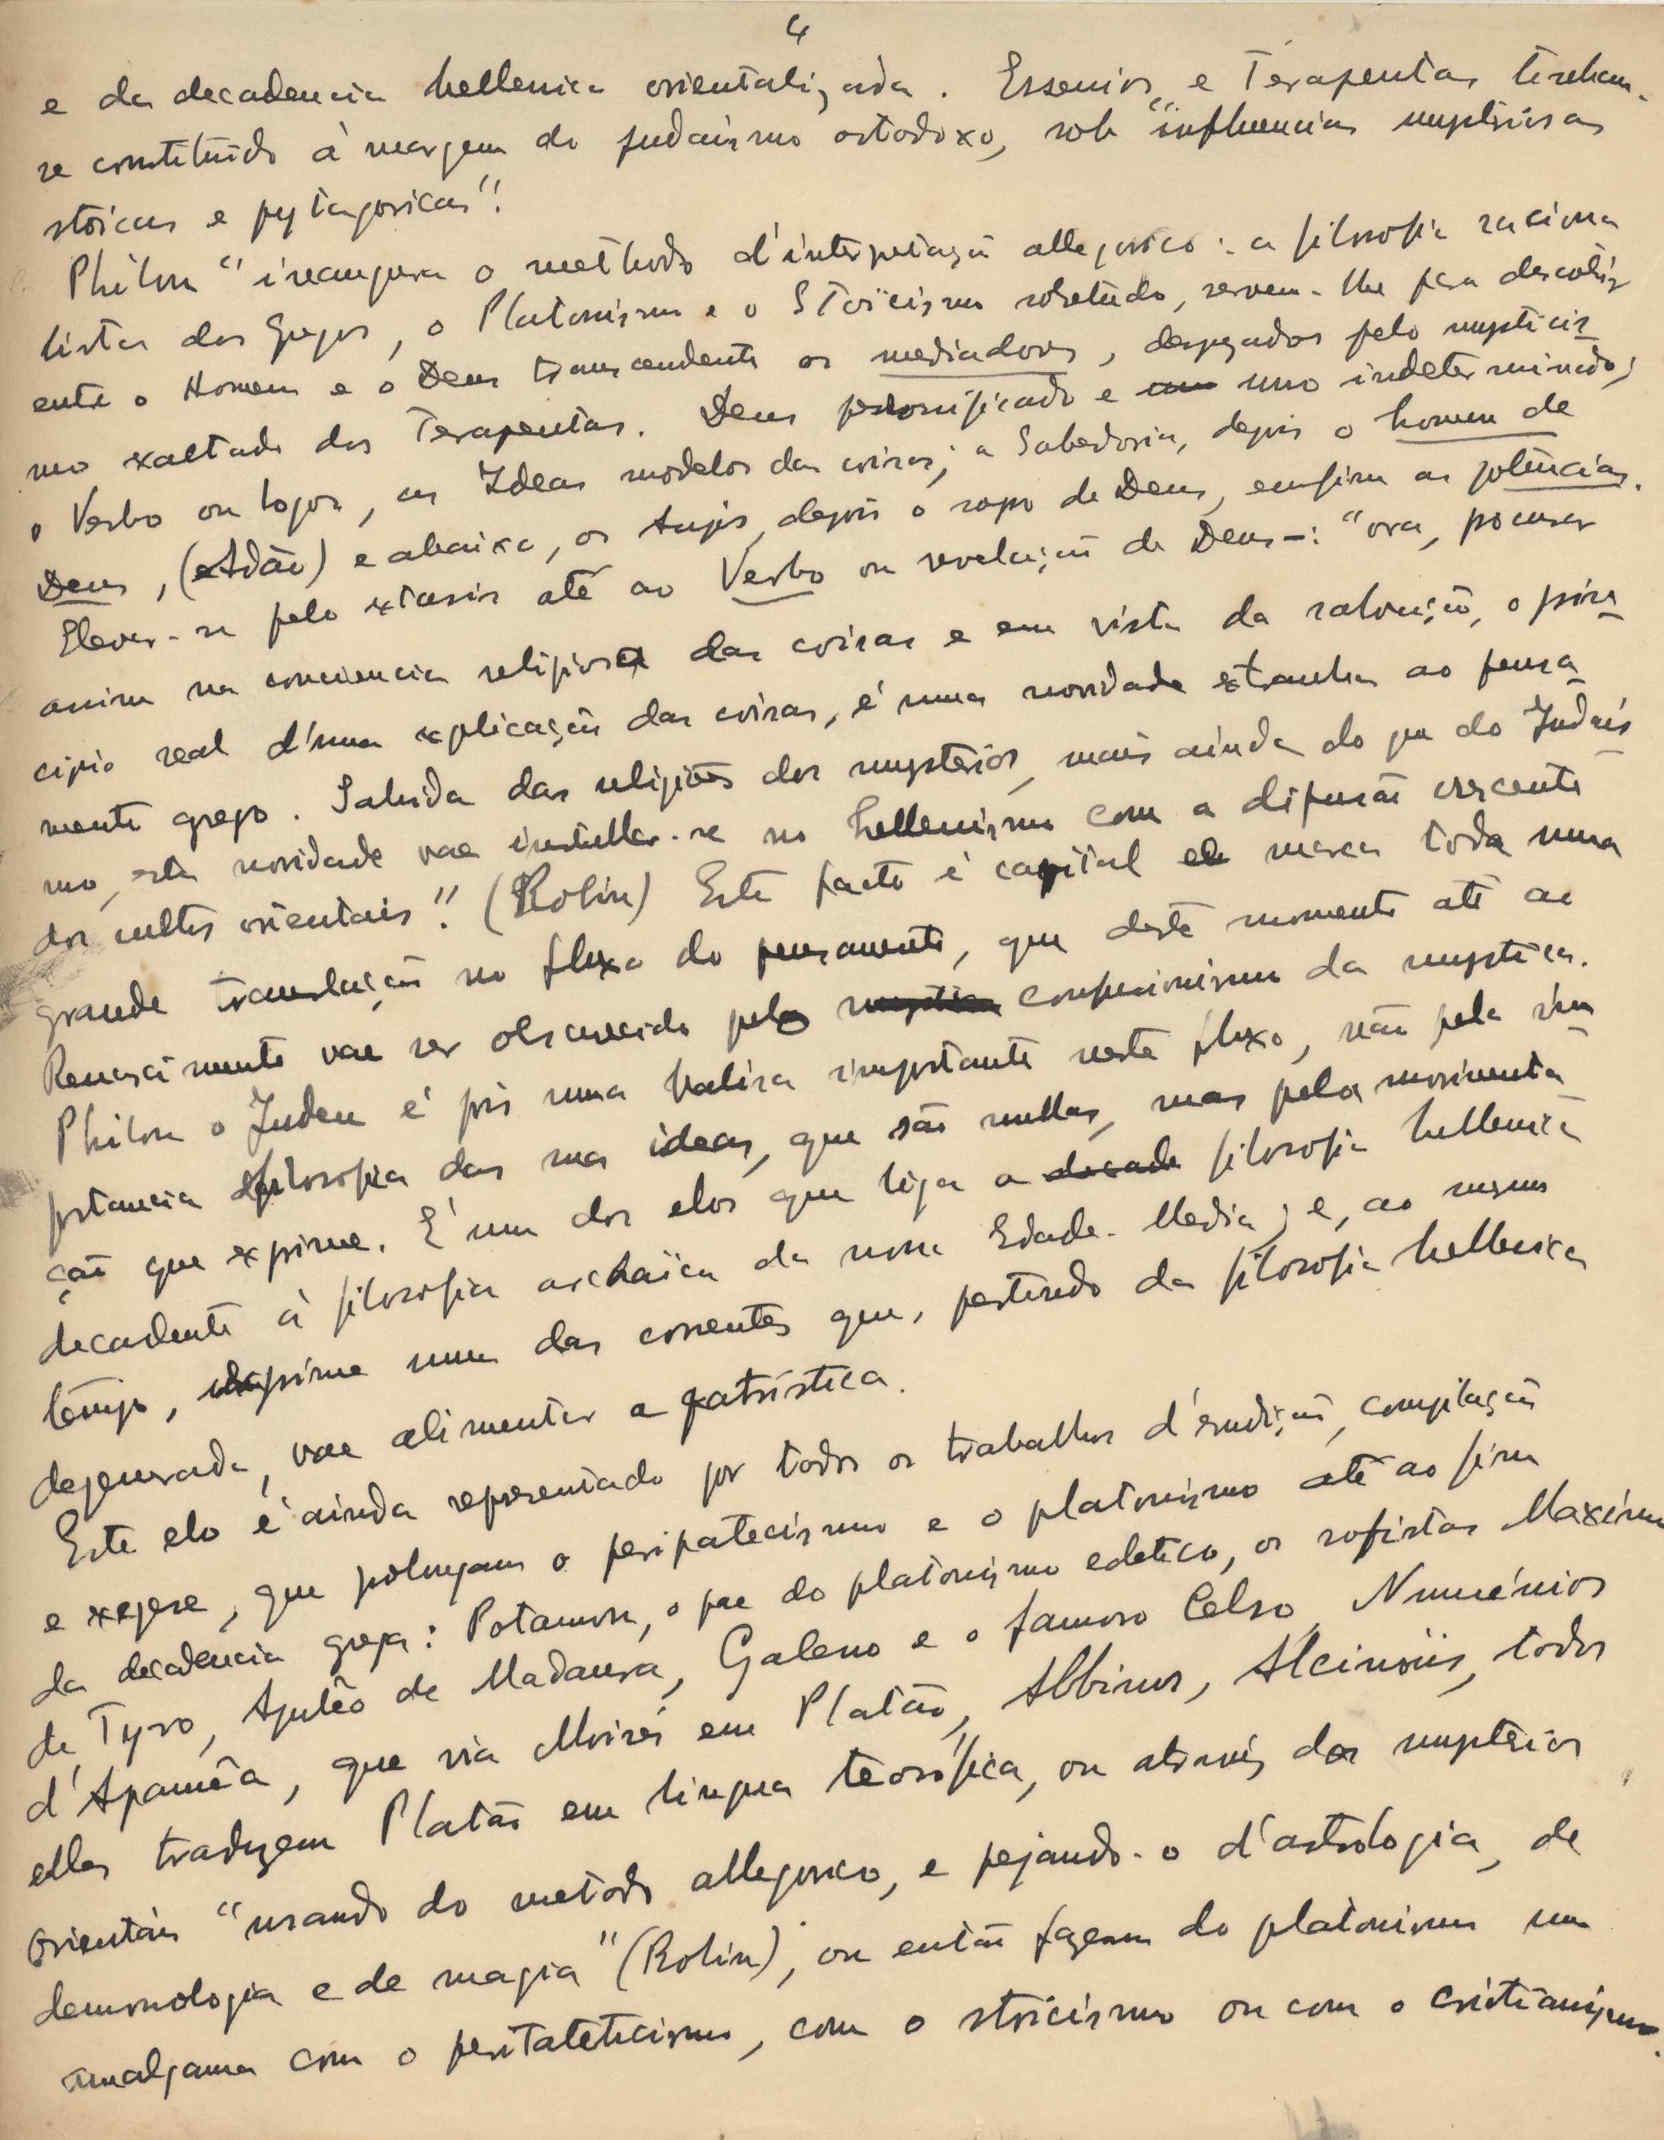 4
e da decadencia hellenica orientalizada. Essenios e Terapeutas tinham-
se constituido à margem do judaismo ortodoxo, sob "influencias mysteriosas
stoicas e pytagoricas".
Philon "inaugura o methodo d'interpretação allegorico: a filosofia raciona
lista dos Gregos, o Platonismo e o Stoïcismo sobretudo, servem-lhe para descobrir
entre o Homem e o Deus transcendente os mediadores, desejados pelo mysticis
mo exaltado dos Terapeutas. Deus personificado e uno indeterminado;
o Verbo ou logos, as Ideas modelos das coisas; a Sabedoria, depois o homem de
Deus, (Adão) e abaixo, os Anjos, depois o sopro de Deus, emfim as potencias.
Elevar-se pelo extasis até ao Verbo ou revelação de Deus—: "ora, procurar
assim na consciencia religiosa das coisas e em vista da salvação, o prin
cipio real d'uma explicação das coisas, é uma novidade extranha ao pensa
mento grego. Sahida das religiões dos mysterios, mais ainda do que do Judais
mo, esta novidade vae installar-se no hellenismo com a difusão crescente
dos cultos orientais". (Robin) Este facto é capital e marca toda uma
grande translação no fluxo do pensamento, que deste momento até ao
Renascimento vae ser obscurecido pelo confusionismo da mystica.
Philon o Judeu é pois uma baliza importante neste fluxo, não pela im
portancia filosofica das suas ideas, que são nullas, mas pela movimenta
ção que exprime. É um dos elos que liga a filosofia hellenica
decadente à filosofia archaïca da nova Edade-Media; e, ao mesmo
tempo, exprime uma das correntes que, partindo da filosofia hellenica
degenerada, vae alimentar a patristica.
Este elo é ainda representado por todos os trabalhos d'erudição, compilação
e exegese, que prolongam o peripatecismo e o platonismo até ao fim
da decadencia grega: Potamon, o pae do platonismo ecletico, os sofistas Maximo
de Tyro, Apuleo de Madaura, Galeno e o famoso Celso, Numénios
d'Apaméa, que via Moisés em Platão, Albinus, Alcinoüs, todos
elles traduzem Platão em lingua teosófica, ou através dos mysterios
orientais "usando do metodo allegorico, e pejando-o d'astrologia, de
demonologia e de magia" (Robin), ou então fazem do platonismo um
amalgama com o peritateticismo, com o stoicismo ou com o cristianismo.